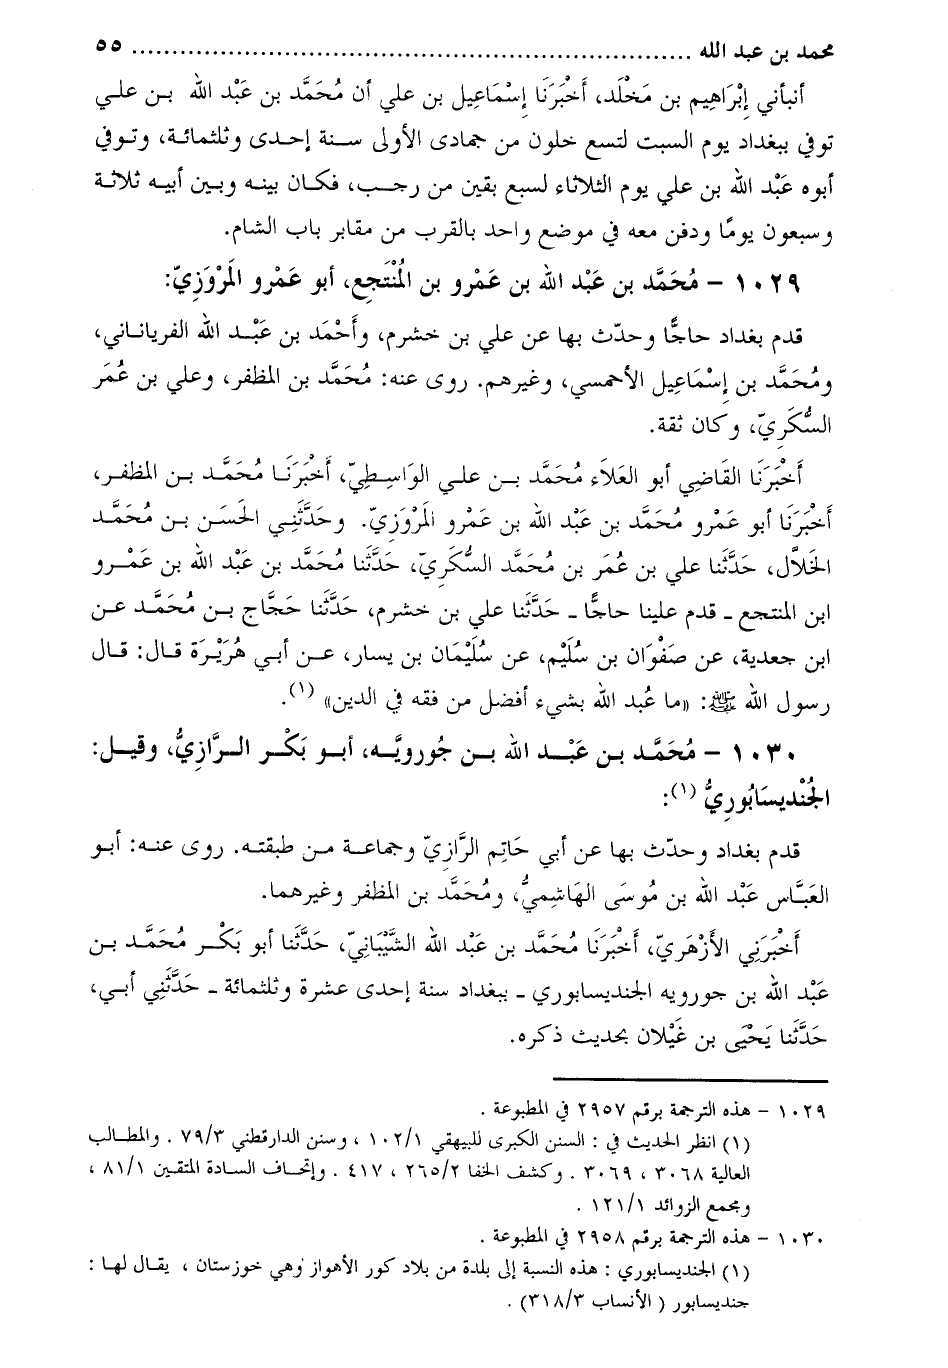 محمد بن عبد الله ........................................................................ ٥٥
أنبأني إِبْرَاهِيم بن مَخْلَد، أَخْبَرَنَا إِسْمَاعِيل بن علي أن مُحَمَّد بن عَبْد الله بن علي
توفي ببغداد يوم السبت لتسع خلون من جمادى الأولى سنة إحدى وثلثمائة، وتوفي
أبوه عَبْد الله بن علي يوم الثلاثاء لسبع بقين من رجب، فكان بينه وبين أبيه ثلاثة
وسبعون يومًا ودفن معه في موضع واحد بالقرب من مقابر باب الشام.
١٠٢٩ – مُحَمَّد بن عَبْد الله بن عَمْرو بن المُنْتَجِع، أبو عَمْرو المَرْوَزِيّ:
قدم بغداد حاجًّا وحدّث بها عن علي بن خشرم، وأَحْمَد بن عَبْد الله الفرياناني،
ومُحَمَّد بن إِسْمَاعِيل الأحمسي، وغيرهم. روى عنه: مُحَمَّد بن المظفر، وعلي بن عُمَر
السُّكَّرِيّ، وكان ثقة.
أَخْبَرَنَا القَاضِي أبو العَلَاء مُحَمَّد بن علي الوَاسِطِيّ، أَخْبَرَنَا مُحَمَّد بن المظفر،
أَخْبَرَنَا أبو عَمْرو مُحَمَّد بن عَبْد الله بن عَمْرو المَرْوَزِيّ. وحَدَّثَنِي الحَسَن بن مُحَمَّد
الخلاّل، حَدَّثَنا علي بن عُمَر بن مُحَمَّد السُّكَّرِيّ، حَدَّثَنا مُحَمَّد بن عَبْد الله بن عَمْرو
ابن المنتجع ـ قدم علينا حاجًّا ـ حَدَّثَنا علي بن خشرم، حَدَّثَنا حَجَّاج بن مُحَمَّد عن
ابن جعدية، عن صَفْوَان بن سُلَيْم، عن سُلَيْمَان بن يسار، عن أبي هُرَيْرَة قال: قال
رسول الله ﷺ: «ما عُبد الله بشيء أفضل من فقه في الدين» (١).
١٠٣٠ – مُحَمَّد بن عَبْد الله بن جُورويَّه، أبو بَكْر الرَّازِيُّ، وقيل:
الجُنْدِيسَابُورِيُّ (١):
قدم بغداد وحدّث بها عن أبي حَاتِم الرَّازِيّ وجماعة من طبقته. روى عنه: أبو
العَبَّاس عَبْد الله بن مُوسَى الهَاشِمِيُّ، ومُحَمَّد بن المظفر وغيرهما.
أَخْبَرَنِي الأَزْهَرِيّ، أَخْبَرَنَا مُحَمَّد بن عَبْد الله الشَّيْبَانِيّ، حَدَّثَنا أبو بَكْر مُحَمَّد بن
عَبْد الله بن جورويه الجنديسابوري ـ ببغداد سنة إحدى عشرة وثلثمائة ـ حَدَّثَنِي أبي،
حَدَّثَنا يَحْيَى بن غَيْلان بحديث ذكره.
١٠٢٩ – هذه الترجمة برقم ٢٩٥٧ في المطبوعة .
(١) انظر الحديث في : السنن الكبرى للبيهقي ١٠٢/١ ، وسنن الدارقطني ٧٩/٣ . والمطالب
العالية ٣٠٦٨ ، ٣٠٦٩ . وكشف الخفا ٢٦٥/٢ ، ٤١٧ . وإتحاف السادة المتقين ٨١/١ ،
ومجمع الزوائد ١٢١/١ .
١٠٣٠ – هذه الترجمة برقم ٢٩٥٨ في المطبوعة .
(١) الجنديسابوري : هذه النسبة إلى بلدة من بلاد كور الأهواز وهي خوزستان ، يقال لها :
جنديسابور ( الأنساب ٣١٨/٣) .